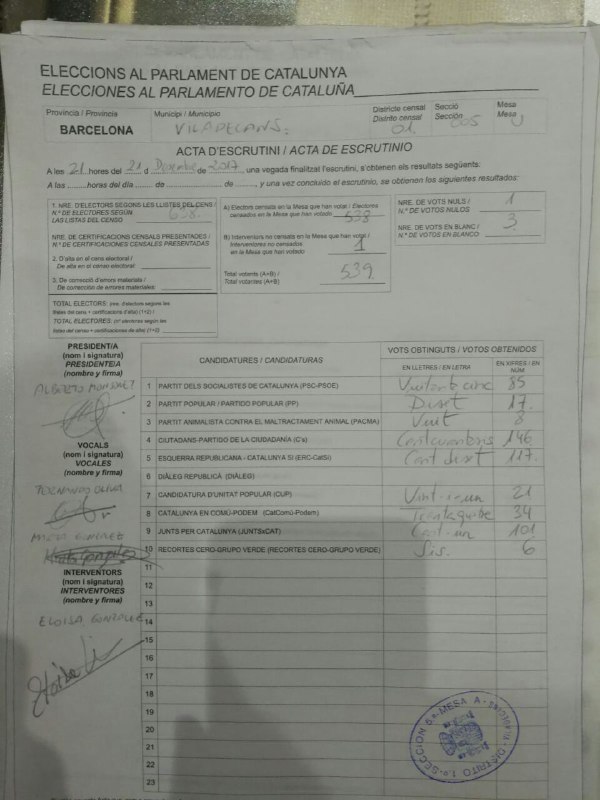 ELECCIONS AL PARLAMENT DE CATALUNYA
ELECCIONES AL PARLAMENTO DE CATALUÑA
Provincia / Provincia
BARCELONA
Municipi / Municipio
VILADECANS.
Districte censal
Distrito censal
01.
Secció
Sección
005
Mesa
Mesa
U
ACTA D'ESCRUTINI / ACTA DE ESCRUTINIO
A les 21 hores del 21 d Desembre de 2017, una vegada finalitzat l'escrutini, s'obtenen els resultats següents:
A las ........ horas del día ........ de ................ de ........, y una vez concluido el escrutinio, se obtienen los siguientes resultados:
1. NRE. D'ELECTORS SEGONS LES LLISTES DEL CENS /
N.º DE ELECTORES SEGÚN
LAS LISTAS DEL CENSO
638.
NRE. DE CERTIFICACIONS CENSALS PRESENTADES /
N.º DE CERTIFICACIONES CENSALES PRESENTADAS
2. D'alta en el cens electoral /
De alta en el censo electoral:
3. De correcció d'errors materials /
De corrección de errores materiales:
TOTAL ELECTORS: (nre. d'electors segons les
llistes del cens + certificacions d'alta) (1+2)
TOTAL ELECTORES: (nº electores según las
listas del censo + certificaciones de alta) (1+2)
A) Electors censats en la Mesa que han votat / Electores
censados en la Mesa que han votado
538
B) Interventors no censats en la Mesa que han votat /
Interventores no censados
en la Mesa que han votado
1
Total votants (A+B) /
Total votantes (A+B)
539
NRE. DE VOTS NULS /
N.º DE VOTOS NULOS
1
NRE. DE VOTS EN BLANC /
N.º DE VOTOS EN BLANCO
3
PRESIDENT/A
(nom i signatura)
PRESIDENTE/A
(nombre y firma)
ALBERTO
VOCALS
(nom i signatura)
VOCALES
(nombre y firma)
INTERVENTORS
(nom i signatura)
INTERVENTORES
(nombre y firma)
ELOISA GONZALEZ
CANDIDATURES / CANDIDATURAS
VOTS OBTINGUTS / VOTOS OBTENIDOS
EN LLETRES / EN LETRA
EN XIFRES / EN NÚM.
1 PARTIT DELS SOCIALISTES DE CATALUNYA (PSC-PSOE) Vuitanta cinc 85
2 PARTIT POPULAR / PARTIDO POPULAR (PP) Disset 17.
3 PARTIT ANIMALISTA CONTRA EL MALTRACTAMENT ANIMAL (PACMA) Vuit 8
4 CIUTADANS-PARTIDO DE LA CIUDADANÍA (C's) 146
5 ESQUERRA REPUBLICANA - CATALUNYA SÍ (ERC-CatSí) Cent disset 117.
6 DIÀLEG REPUBLICÀ (DIÀLEG)
7 CANDIDATURA D'UNITAT POPULAR (CUP) Vint-i-un 21
8 CATALUNYA EN COMÚ-PODEM (CatComú-Podem) Trentaquatre 34
9 JUNTS PER CATALUNYA (JUNTSxCAT) Cent-un 101
10 RECORTES CERO-GRUPO VERDE (RECORTES CERO-GRUPO VERDE) Sis. 6
11
12
13
14
15
16
17
18
19
20
21
22
23
DISTRITO 1.º-SECCION 5.ª-MESA A - VILADECANS